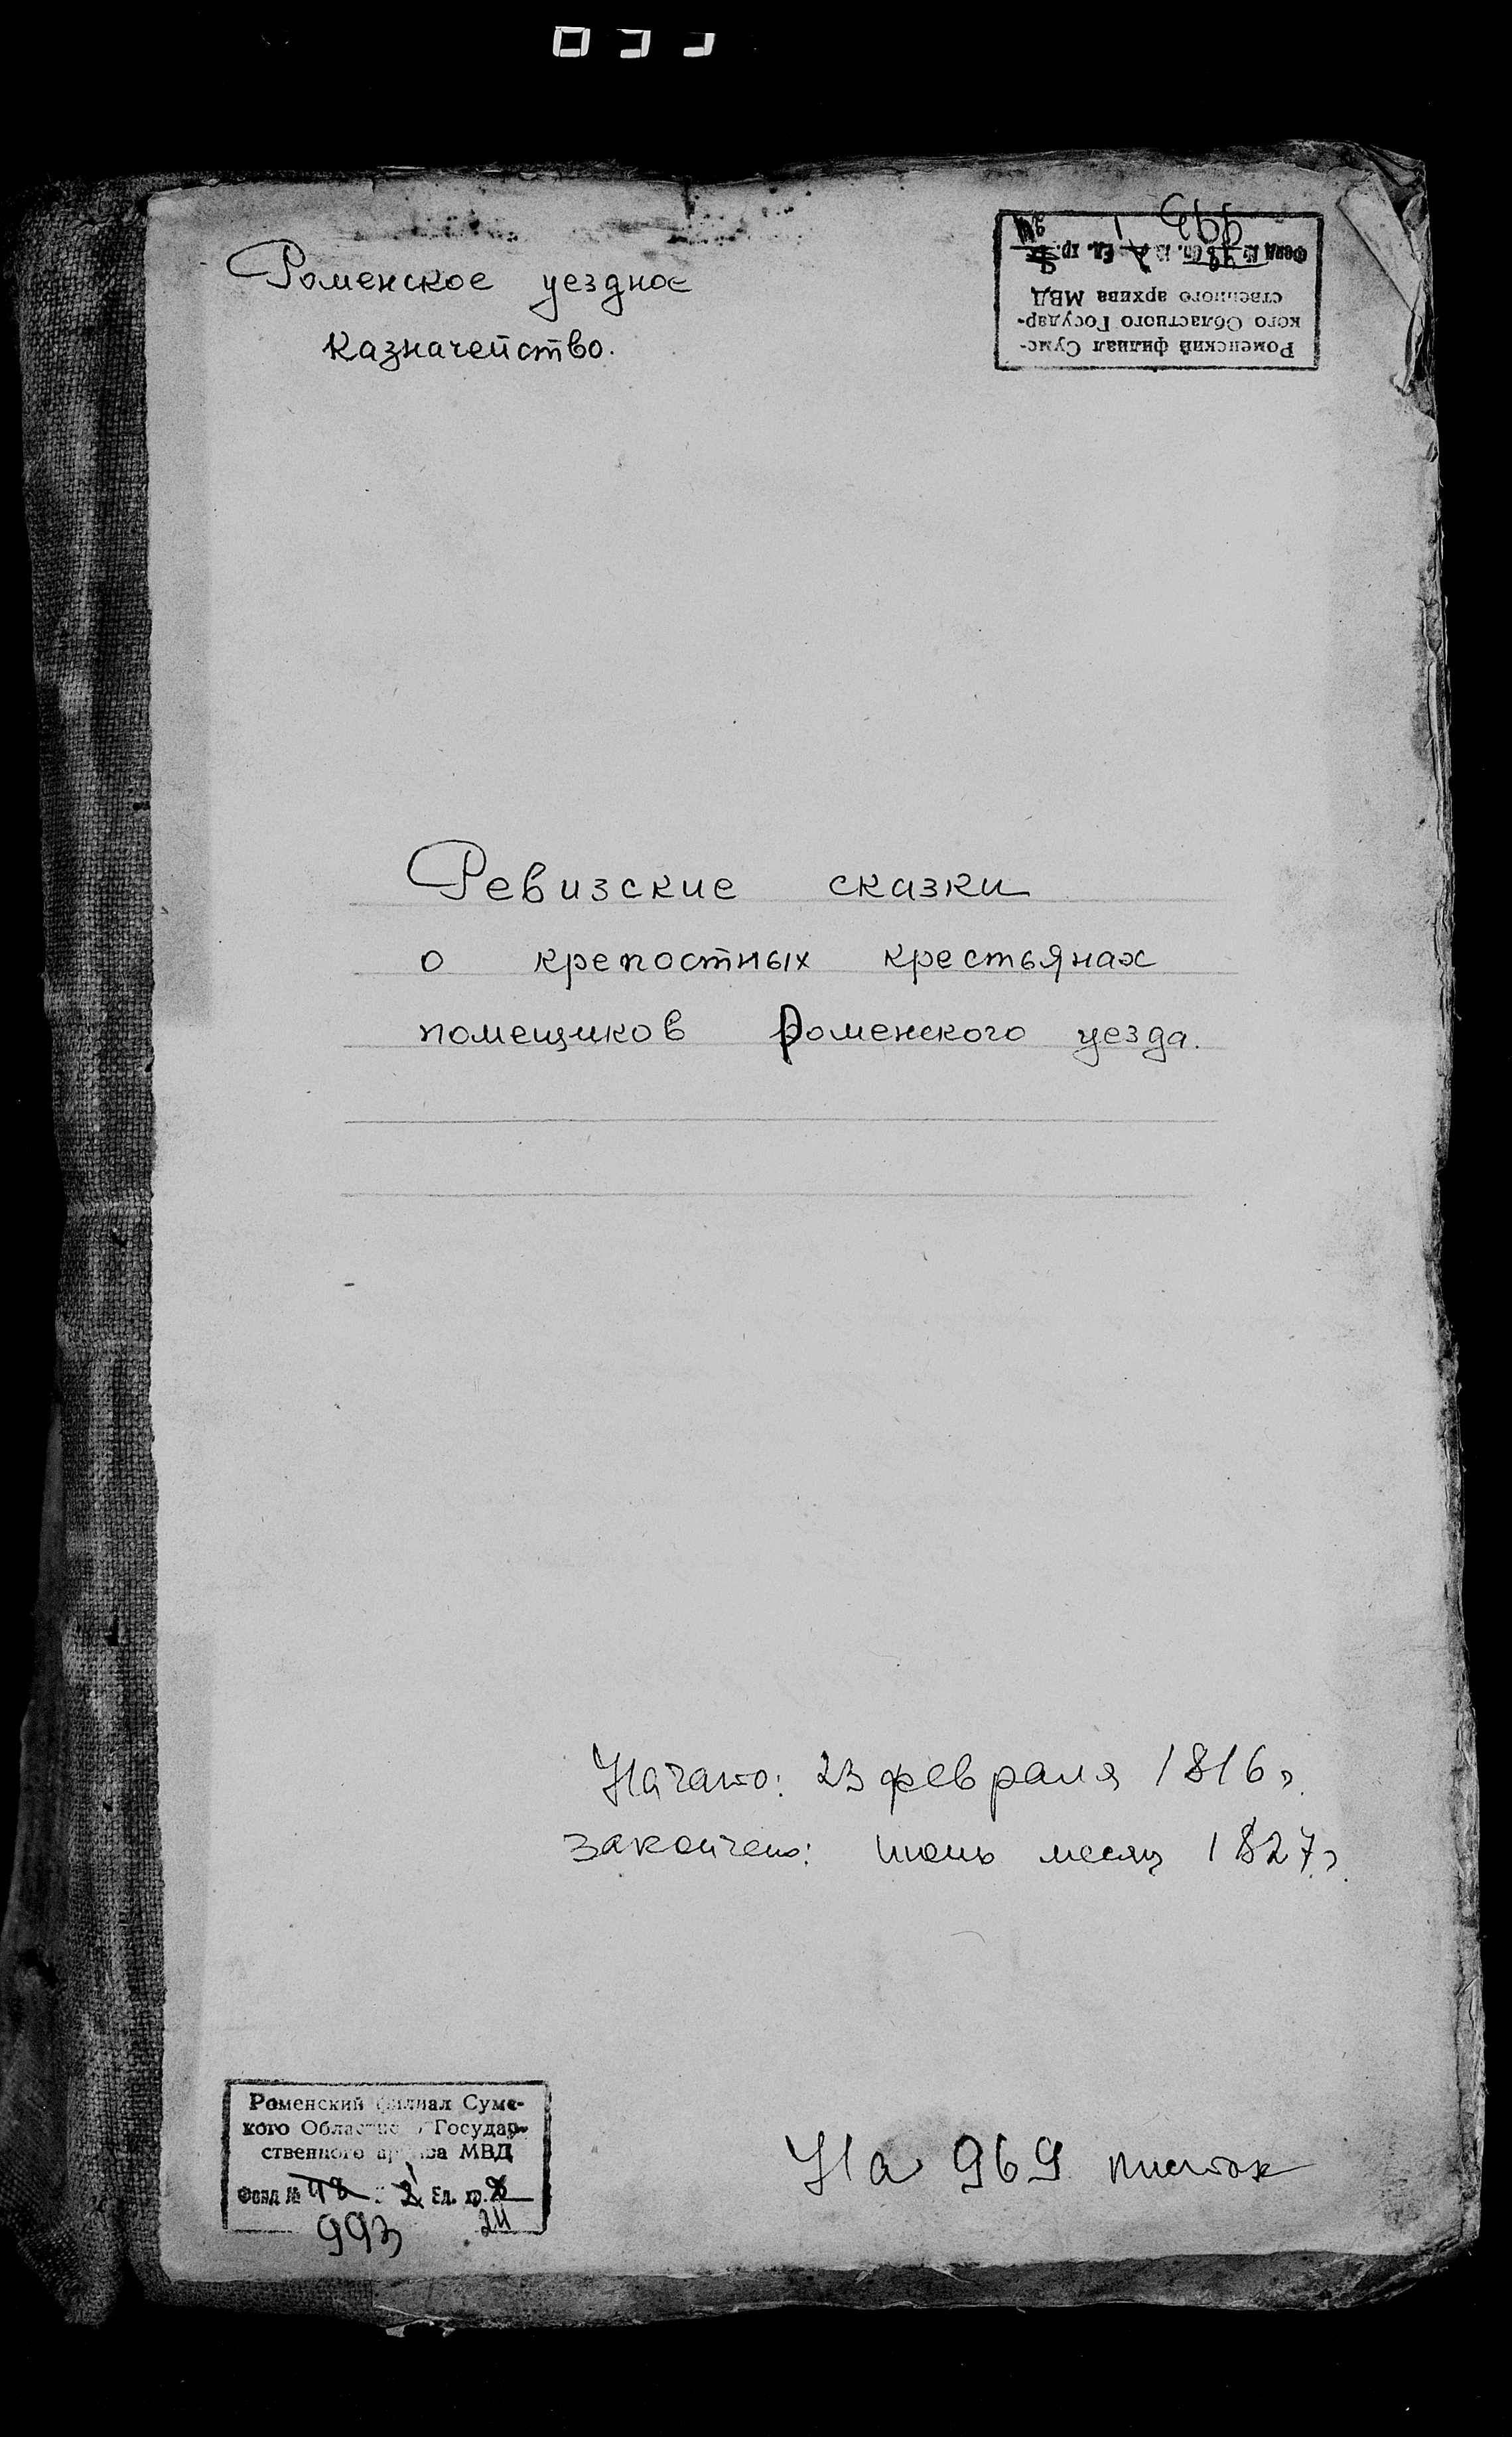 Роменское уездное
казначейство.
Роменский филиал Сумс-
кого Областного Государ-
ственного архива МВД
Фонд № Оп. № Ед. хр.
993 24
Ревизские сказки
о крепостных крестьянах
помещиков Роменского уезда.
Начато: 23 февраля 1816 г.
Закончено: июнь месяц 1827 г.
На 969 листах
Роменский филиал Сумс-
кого Областного Государ-
ственного архива МВД
Фонд № 48 2 Ед. хр. 8
993 1 24